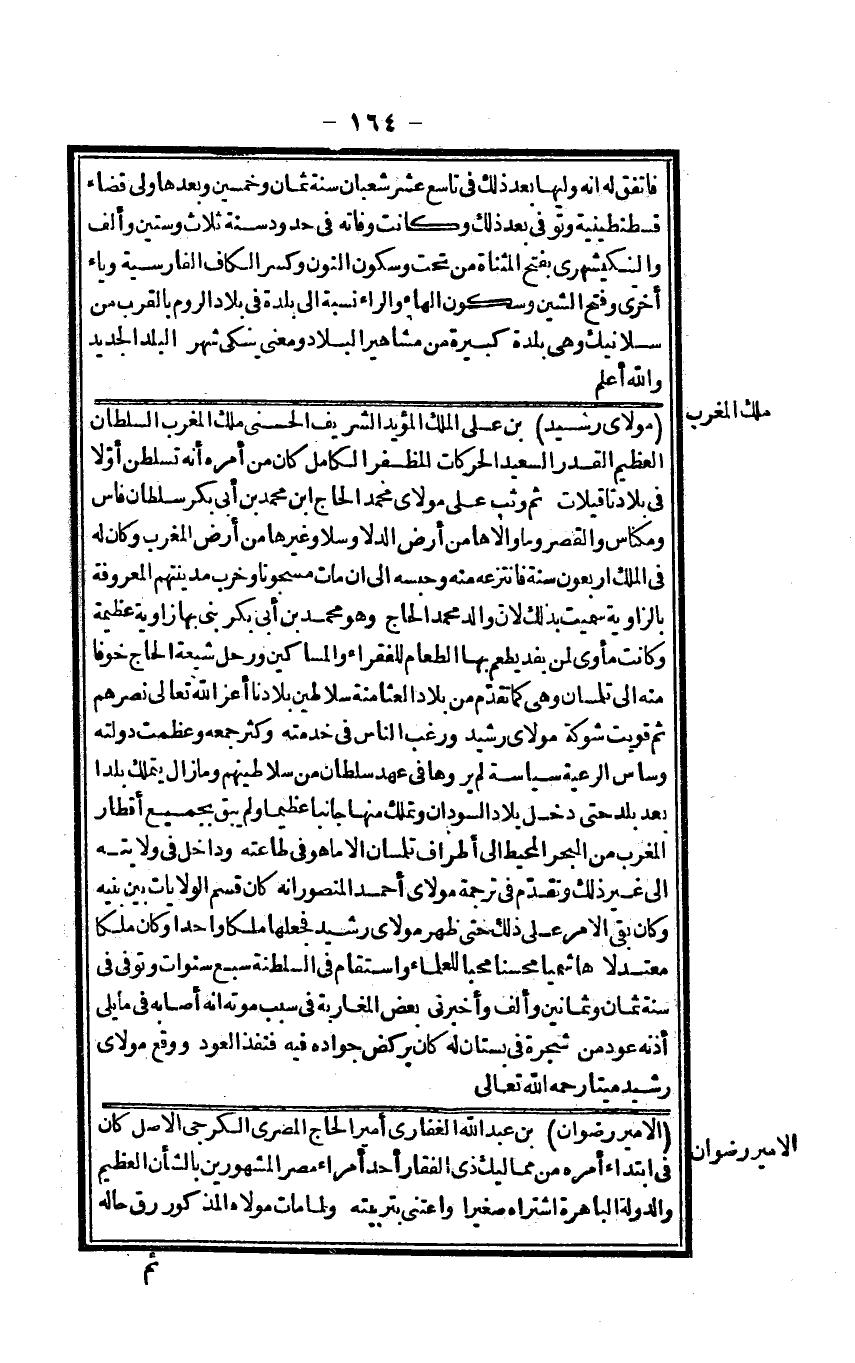 - ١٦٤ -
فاتفق له انه وليها بعد ذلك فى تاسع عشر شعبان سنة ثمان وخمسين وبعدها ولى قضاء
قسطنطينية وتوفى بعد ذلك وكانت وفاته فى حدود سنة ثلاث وستين وألف
والينكيشهرى بفتح المثناة من تحت وسكون النون وكسر الكاف الفارسية وياء
أخرى وفتح الشين وسكون الهاء والراء نسبة الى بلدة فى بلاد الروم بالقرب من
سلانيك وهى بلدة كبيرة من مشاهير البلاد ومعنى ينكى شهر البلد الجديد
والله أعلم
ملك المغرب
(مولاى رشيد) بن على الملك المؤيد الشريف الحسنى ملك المغرب السلطان
العظيم القدر السعيد الحركات المظفر الكامل كان من أمره أنه تسلطن أوّلا
فى بلاد تافيلات ثم وثب على مولاى محمد الحاج ابن محمد بن أبى بكر سلطان فاس
ومكناس والقصر وما والاها من أرض الدلا وسلا وغيرها من أرض المغرب وكان له
فى الملك اربعون سنة فانتزعه منه وحبسه الى ان مات مسجونا وخرب مدينتهم المعروفة
بالزاوية سميت بذلك لان والد محمد الحاج وهو محمد بن أبى بكر بنى بها زاوية عظيمة
وكانت مأوى لمن يفد يطعم بها الطعام للفقراء والمساكين ورحل شيعة الحاج خوفا
منه الى تلمسان وهى كما تقدّم من بلاد العثامنة سلاطين بلادنا أعز الله تعالى نصرهم
ثم قويت شوكة مولاى رشيد ورغب الناس فى خدمته وكثر جمعه وعظمت دولته
وساس الرعية سياسة لم يروها فى عهد سلطان من سلاطينهم ومازال يتملك بلدا
بعد بلد حتى دخل بلاد السودان وتملك منها جانبا عظيما ولم يبق بجميع أقطار
المغرب من البحر المحيط الى أطراف تلمسان الا ما هو فى طاعته وداخل فى ولايته
الى غير ذلك وتقدّم فى ترجمة مولاى أحمد المنصور انه كان قسم الولايات بين بنيه
وكان بقى الامر على ذلك حتى ظهر مولاى رشيد فجعلها ملكا واحدا وكان ملكا
معتدلا هاشميا محسنا محبا للعلماء واستقام فى السلطنة سبع سنوات وتوفى فى
سنة ثمان وثمانين وألف وأخبرنى بعض المغاربة فى سبب موته انه أصابه فى مايلى
أذنه عود من شجرة فى بستان له كان يركض جواده فيه فنفذ العود ووقع مولاى
رشيد ميتا رحمه الله تعالى
الامير رضوان
(الامير رضوان) بن عبد الله الغفارى أمير الحاج المصرى الكرجى الاصل كان
فى ابتداء أمره من مماليك ذى الفقار أحد أمراء مصر المشهورين بالشأن العظيم
والدولة الباهرة اشتراه صغيرا واعتنى بتربيته ولما مات مولاه المذكور رق حاله
ثم